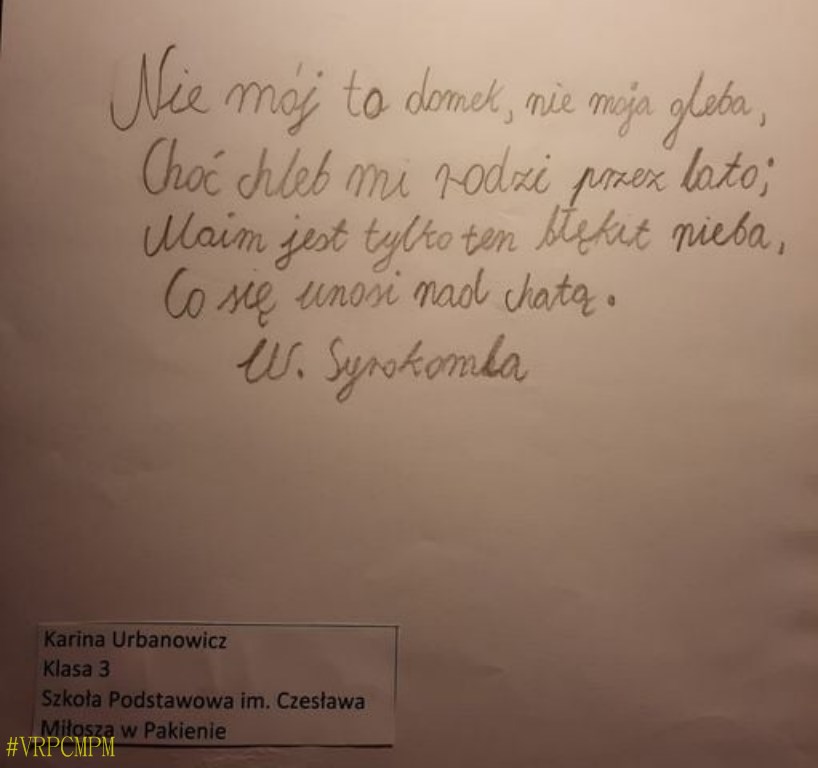 Nie mój to domek, nie moja gleba,
Choć chleb mi rodzi przez lato;
Moim jest tylko ten błękit nieba,
Co się unosi nad chatą.
W. Syrokomla
Karina Urbanowicz
Klasa 3
Szkoła Podstawowa im. Czesława
Miłosza w Pakienie
#VRPCMPM